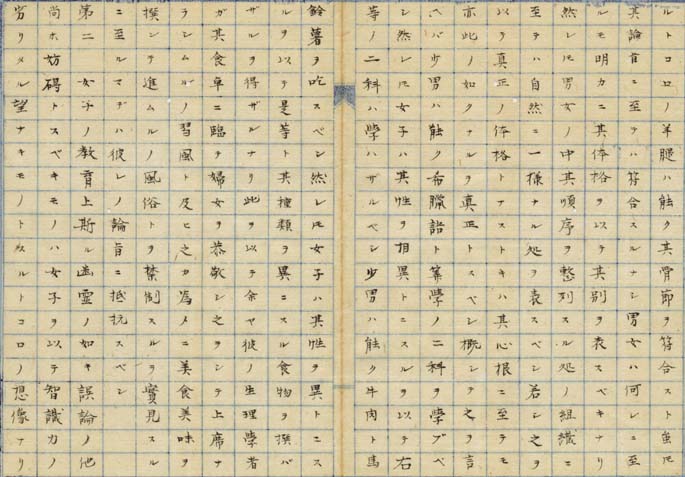 ルトコロノ羊腿ハ能ク其骨節ヲ符合スト虽𪜈
其論旨ニ至ヲハ符合スルナシ男女ハ何レニ至
ルモ明カニ其体格ヲ以テ其別ヲ表スベキナリ
然レ𪜈男女ノ中其順序ヲ整列スル処ノ組織ニ
至テハ自然ニ一様ナル処ヲ表スベシ若シ之ヲ
以ヲ真正ノ体格トナストキハ其心根ニ至テモ
亦此ノ如クナルヲ真正トスベシ概シテ之ヲ言
ヘバ少男ハ能ク希臘語ト筭學ノ二科ヲ學ブベ
シ然レ𪜈女子ハ其性ヲ相異トニスルヲ以テ右
等ノ二科ハ學ハザルベシ少男ハ能ク牛肉ト馬
鈴薯ヲ吃スベシ然レ𪜈女子ハ其性ヲ異トニス
ルヲ以テ是等ト其種類ヲ異ニスル食物ヲ撰バ
ザルヲ得ザルナリ此ヲ以テ余ヤ彼ノ生理學者
ガ其食卓ニ臨ヲ婦女ヲ恭敬シ之ヲシテ上席ナ
ラシムルノ習風ト及ヒ之カ為メニ美食美味ヲ
撰ンテ進ムルノ風俗トヲ禁制スルヲ實見スル
ニ至ルマデハ彼レノ論旨ニ抵抗スベシ
第二女子ノ教育上斯ル幽霊ノ如キ誤論ノ他
尚ホ妨碍トスベキモノハ女子ヲ以テ智識力ノ
劣リメル望ナキモノトスルトコロノ想像ナリ